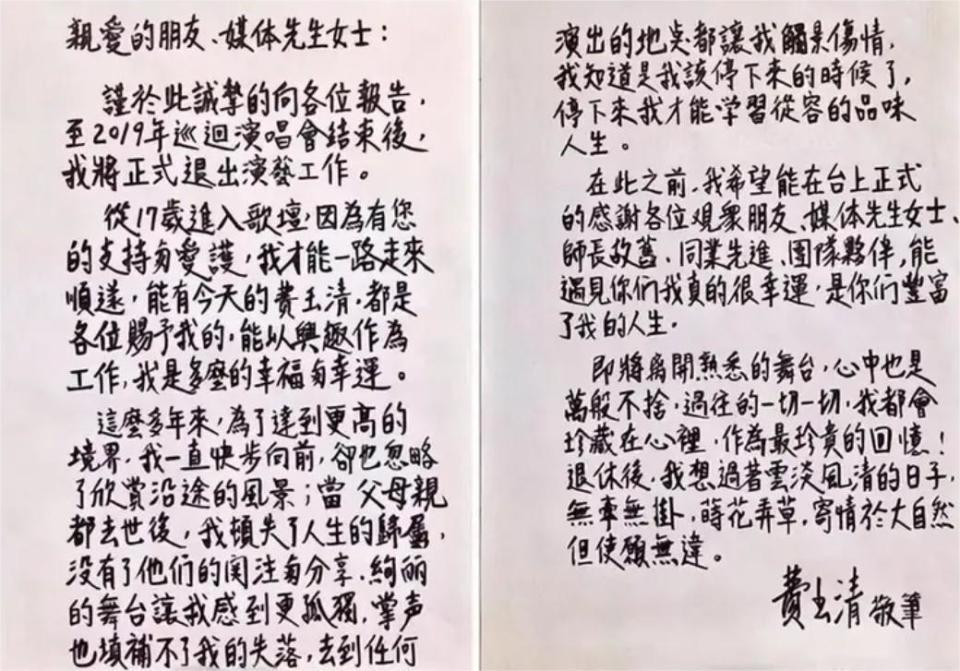 親愛的朋友、媒体先生女士：
謹於此誠摯的向各位報告，
至2019年巡迴演唱會結束後，
我將正式退出演藝工作。
從17歲進入歌壇，因為有您
的支持与愛護，我才能一路走來
順遂，能有今天的費玉清，都是
各位賜予我的，能以興趣作為
工作，我是多麼的幸福与幸運。
這麼多年來，為了達到更高的
境界，我一直快步向前，卻也忽略
了欣賞沿途的風景；當父母親
都去世後，我頓失了人生的歸屬，
没有了他們的関注与分享，絢丽
的舞台讓我感到更孤獨，掌声
也填補不了我的失落，去到任何
演出的地点都讓我觸景傷情，
我知道是我該停下來的時候了，
停下來我才能学習從容的品味
人生。
在此之前，我希望能在台上正式
的感謝各位观衆朋友、媒体先生女士、
師長故舊、同業先進、團隊夥伴，能
遇見你們我真的很幸運，是你們豐富
了我的人生。
即將離開熟悉的舞台，心中也是
萬般不捨，過往的一切一切，我都會
珍藏在心裡，作為最珍貴的回憶！
退休後，我想過著雲淡風清的日子，
無牽無掛，蒔花弄草，寄情於大自然
但使願無違。
費玉清敬筆